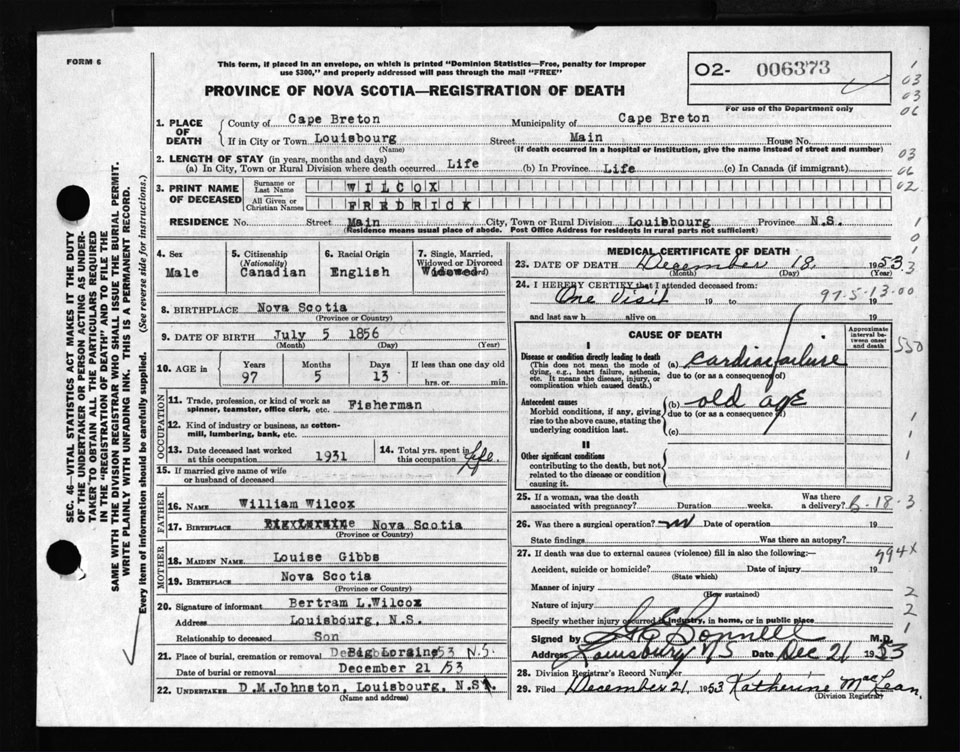 FORM 6
This form, if placed in an envelope, on which is printed "Dominion Statistics—Free, penalty for improper
use $300," and properly addressed will pass through the mail "FREE"
O2- 006373
PROVINCE OF NOVA SCOTIA—REGISTRATION OF DEATH
For use of the Department only
1
03
03
06
03
06
02
1
0
3
1. PLACE OF DEATH
County of Cape Breton Municipality of Cape Breton
If in City or Town Louisbourg Street Main House No.
(Name) (If death occurred in a hospital or institution, give the name instead of street and number)
2. LENGTH OF STAY (in years, months and days)
(a) In City, Town or Rural Division where death occurred Life (b) In Province Life (c) In Canada (if immigrant)
3. PRINT NAME OF DECEASED
Surname or Last Name WILCOX
All Given or Christian Names FREDRICK
RESIDENCE No. Street Main City, Town or Rural Division Louisbourg Province N.S.
(Residence means usual place of abode. Post Office Address for residents in rural parts not sufficient)
4. Sex 5. Citizenship (Nationality) 6. Racial Origin 7. Single, Married, Widowed or Divorced
Male Canadian English Widowed
8. BIRTHPLACE Nova Scotia
(Province or Country)
9. DATE OF BIRTH July 5 1856
(Month) (Day) (Year)
10. AGE in Years Months Days If less than one day old
97 5 13 hrs. or min.
OCCUPATION
11. Trade, profession, or kind of work as
spinner, teamster, office clerk, etc. Fisherman
12. Kind of industry or business, as cotton-
mill, lumbering, bank, etc.
13. Date deceased last worked
at this occupation 1931
14. Total yrs. spent in
this occupation Life
15. If married give name of wife
or husband of deceased
FATHER
16. NAME William Wilcox
17. BIRTHPLACE Big Loraine Nova Scotia
(Province or Country)
MOTHER
18. MAIDEN NAME Louise Gibbs
19. BIRTHPLACE Nova Scotia
(Province or Country)
20. Signature of informant Bertram L.Wilcox
Address Louisbourg, N.S.
Relationship to deceased Son
21. Place of burial, cremation or removal Big Loraine N.S.
Date of burial or removal December 21 53
22. UNDERTAKER D.M.Johnston, Louisbourg, N.S.
MEDICAL CERTIFICATE OF DEATH
23. DATE OF DEATH December 18 1953
(Month) (Day) (Year)
24. I HEREBY CERTIFY that I attended deceased from:
One Visit 19 to 19
97-5-13-00
and last saw h alive on 19
CAUSE OF DEATH
Approximate interval between onset and death
550
I
Disease or condition directly leading to death
(This does not mean the mode of
dying, e.g., heart failure, asthenia,
etc. It means the disease, injury, or
complication which caused death.)
(a) cardiac failure
due to (or as a consequence of)
Antecedent causes
Morbid conditions, if any, giving
rise to the above cause, stating the
underlying condition last.
(b) old age
due to (or as a consequence of)
(c)
1
1
1
II
Other significant conditions
contributing to the death, but not
related to the disease or condition
causing it.
25. If a woman, was the death
associated with pregnancy? Duration weeks. Was there
a delivery?
18-3
26. Was there a surgical operation? Date of operation 19
State findings Was there an autopsy?
27. If death was due to external causes (violence) fill in also the following:—
794x
Accident, suicide or homicide? Date of injury 19
(State which)
Manner of injury
(How sustained)
2
Nature of injury
2
Specify whether injury occurred in industry, in home, or in public place
1
Signed by M.D.
Address Louisburg NS Date Dec 21 1953
28. Division Registrar's Record Number
29. Filed December 21, 1953 Katherine MacLean
(Division Registrar)
SEC. 46—VITAL STATISTICS ACT MAKES IT THE DUTY
OF THE UNDERTAKER OR PERSON ACTING AS UNDER-
TAKER TO OBTAIN ALL THE PARTICULARS REQUIRED
IN THE "REGISTRATION OF DEATH" AND TO FILE THE
SAME WITH THE DIVISION REGISTRAR WHO SHALL ISSUE THE BURIAL PERMIT.
WRITE PLAINLY WITH UNFADING INK. THIS IS A PERMANENT RECORD.
Every item of information should be carefully supplied. (See reverse side for instructions.)